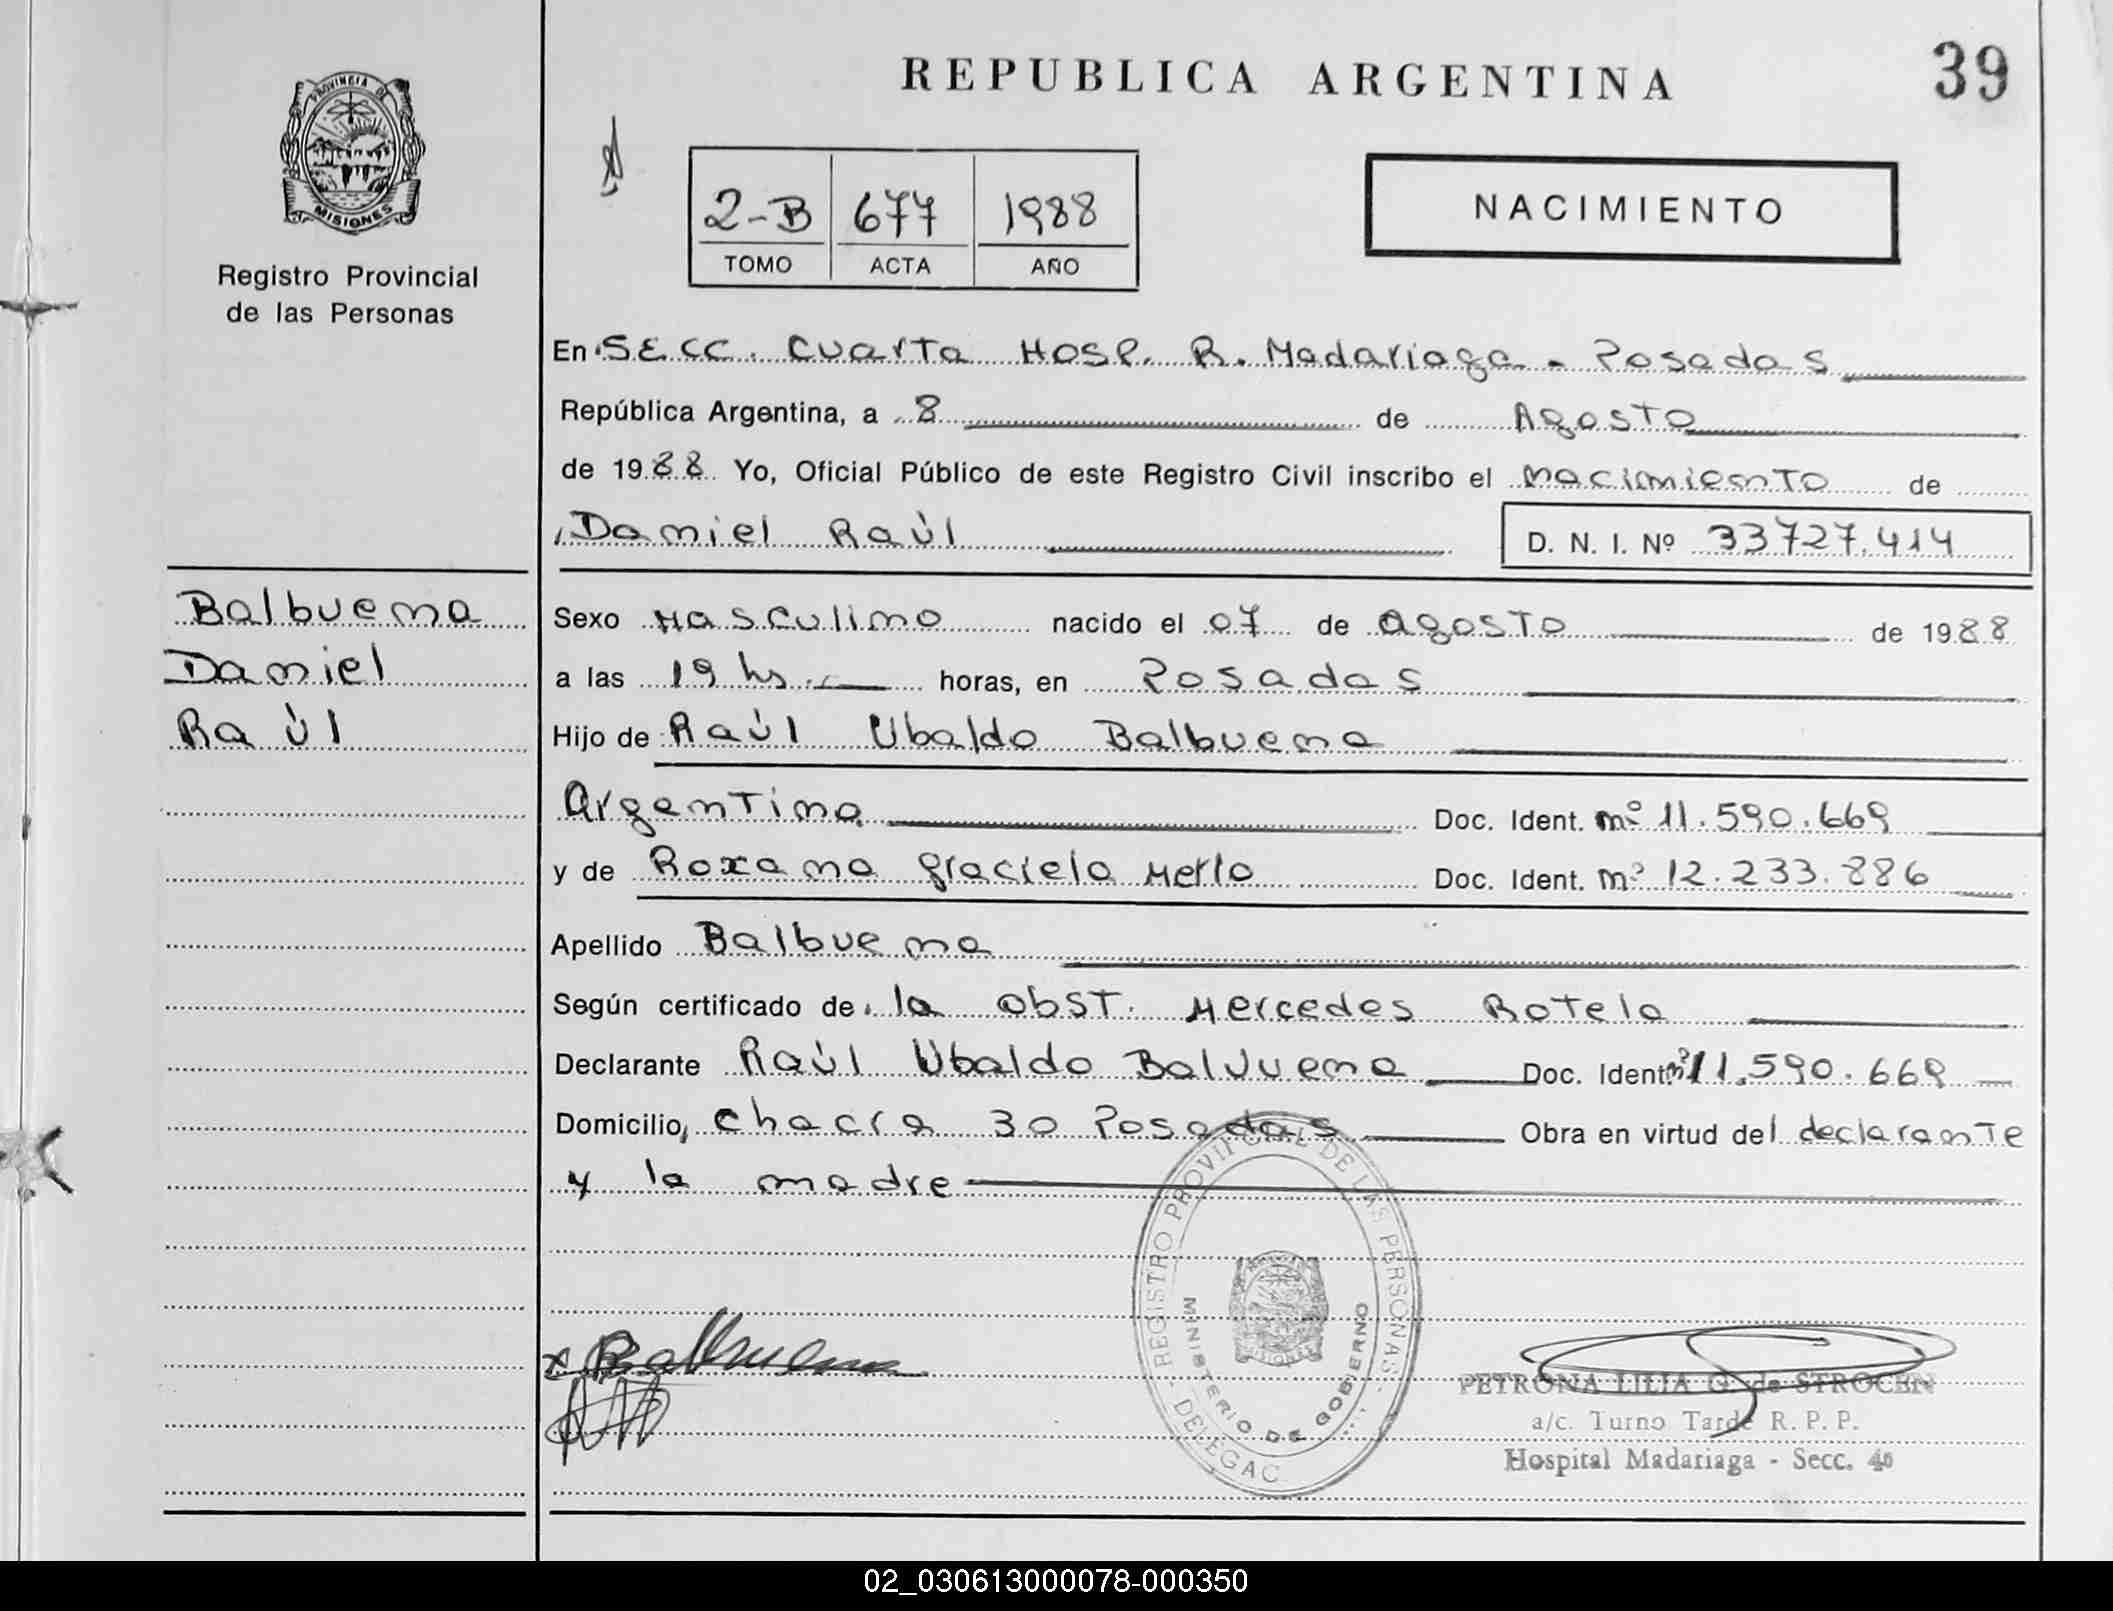 REPUBLICA ARGENTINA
39
PROVINCIA DE
MISIONES
Registro Provincial
de las Personas
2-B 677 1988
TOMO ACTA AÑO
NACIMIENTO
En Secc. Cuarta Hosp. R. Madariaga - Posadas
República Argentina, a 8 de Agosto
de 1988 Yo, Oficial Público de este Registro Civil inscribo el nacimiento de
Daniel Raúl
D. N. I. Nº 33727.414
Balbuena
Daniel
Raúl
Sexo Masculino nacido el 07 de agosto de 1988
a las 19 hs. horas, en Posadas
Hijo de Raúl Ubaldo Balbuena
Argentina Doc. Ident. nº 11.590.669
y de Roxana Graciela Merlo Doc. Ident. nº 12.233.886
Apellido Balbuena
Según certificado de la Obst. Mercedes Rotela
Declarante Raúl Ubaldo Balvuena Doc. Ident. nº 11.590.669
Domicilio, Chacra 30 Posadas Obra en virtud del declarante
y la madre
REGISTRO PROVINCIAL DE LAS PERSONAS
MINISTERIO DE GOBIERNO
DELEGAC
x Balbuena
PETRONA LILIA G. de STROCEN
a/c. Turno Tarde R. P. P.
Hospital Madariaga - Secc. 4ª
02_030613000078-000350